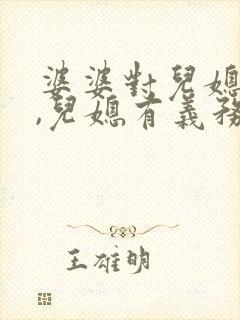 婆婆對兒媳
,兒媳有義務
王雄明